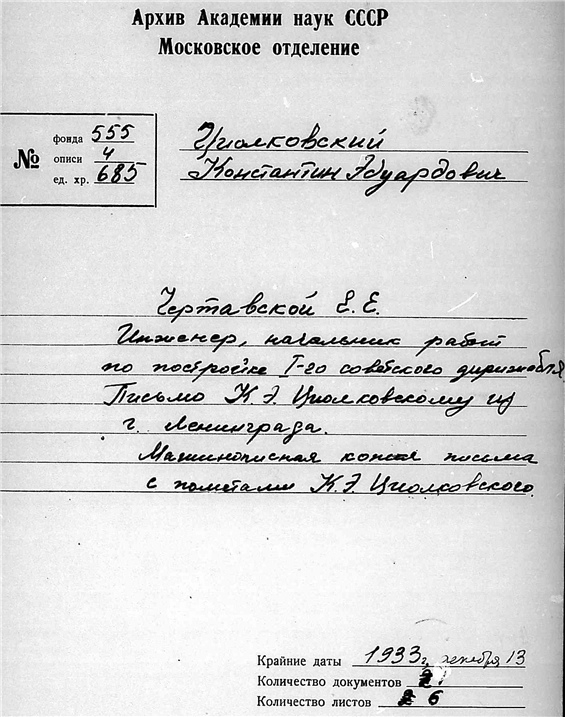 Архив Академии наук СССР
Московское отделение
№
фонда 555
описи 4
ед. хр. 685
Циолковский
Константин Эдуардович
Чертавской Е. Е.
Инженер, начальник работ
по постройке I-го советского дирижабля
Письмо К. Э. Циолковскому из
г. Ленинграда.
Машинописная копия письма
с пометами К. Э. Циолковского
Крайние даты 1933 г. декабря 13
Количество документов
Количество листов 6